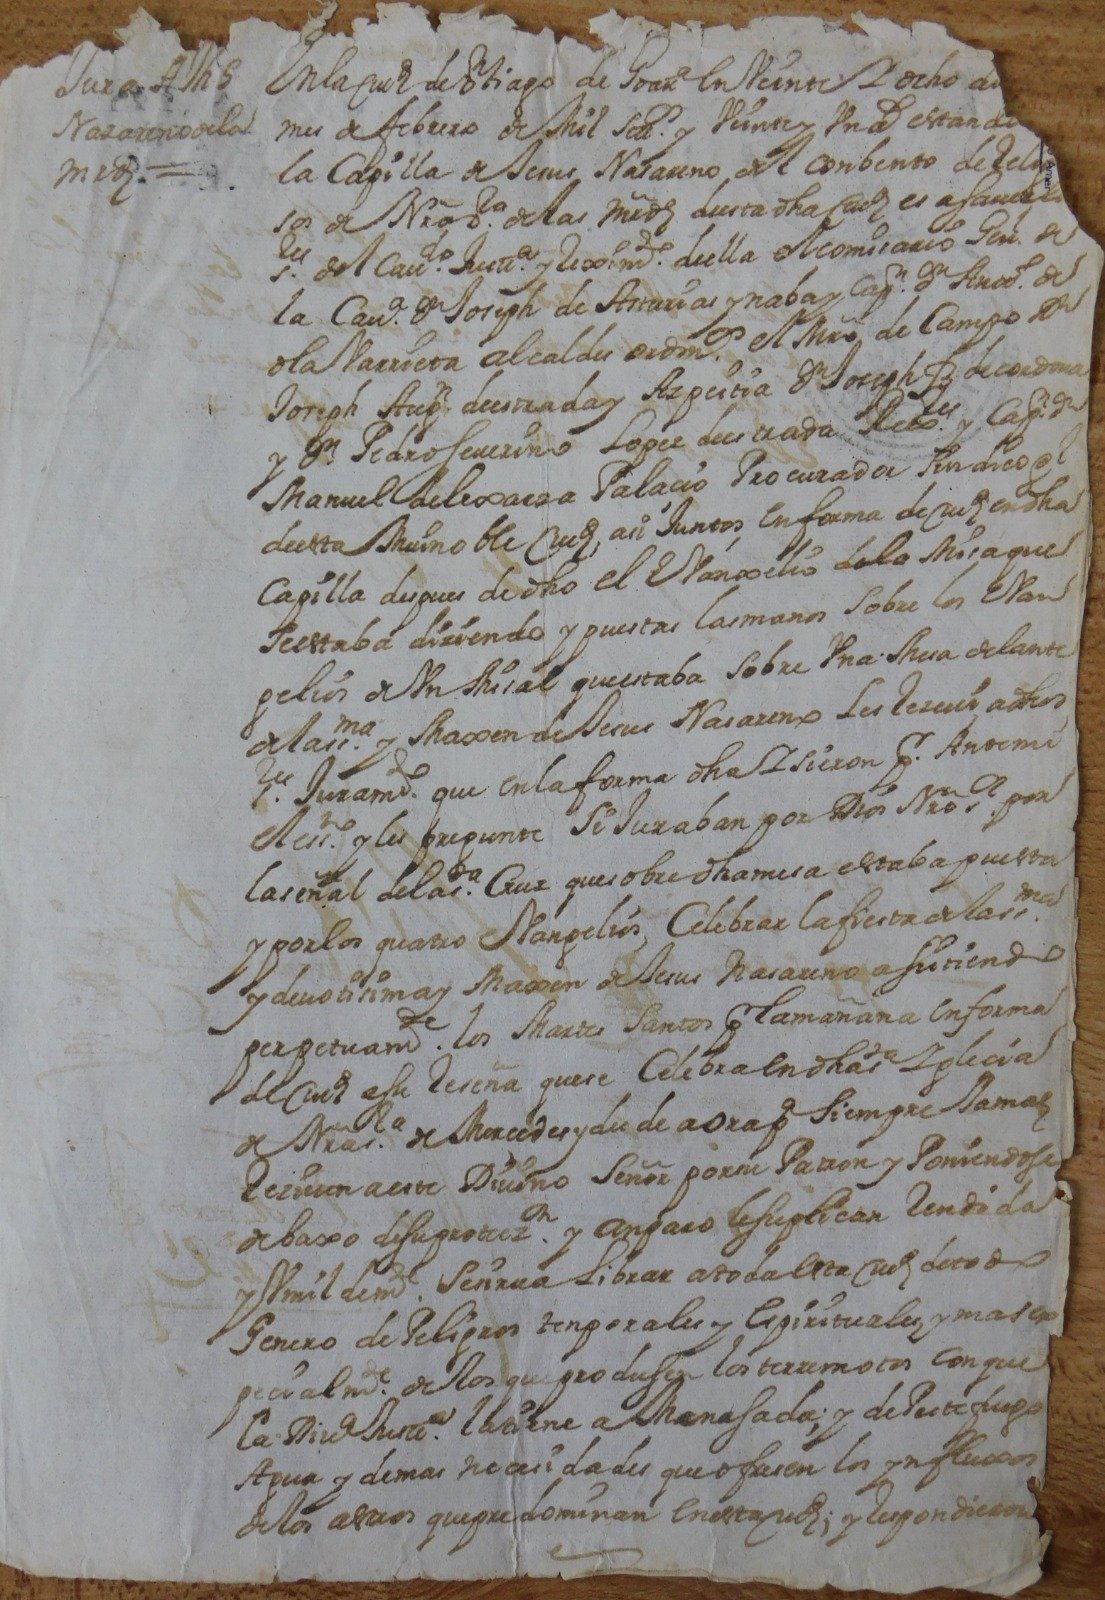 Jura A Jhs
Nazareno de la
mrd
En la Ciud de Stiago de Goata en Veinte y ocho de
mes de febrero de Mil setts y Veinte y Un as estando
la Capilla de Jesus Nasareno del combento de Relig
sos de Nra Sra de las mrds desta dha Ciud es a saver
res del Cavdo Justa y Reximto della el comisario Genl de
la Cava Dn Joseph de Asturias y naba y Capn Dn de
ola Varrieta alcaldes ordinos el Mro de Campo Dn
Joseph Augn de estrada y Aspeitia Dn Joseph de cordova
y Dn Pedro Severino Lopez de estrada Rexes y Capn Dn
Manuel de Lexarza Palacio Procurador Sindico Gl
de esta Mui noble Ciud, asi Juntos en forma de Ciud en dha
Capilla despues de dho el Evangelio de la Misa que
se estaba diziendo y puestas las manos sobre los Evan
gelios de Un Misal que estaba sobre Una Mesa delante
de la ssma Ymaxen de Jesus Nasareno Les Reseui a dhos
res Juramto que en la forma dha Isieron pr Ante mi
el essno y les pregunte Si Juraban por Dios Nro Sr por
la señal de la sta Cruz que sobre dha mesa estaba puesta
y por los quatro Evangelios, Celebrar la fiesta de la ssma
y devotisima Ymaxen de Jesus Nasareno asistiendo
perpetuamte los Martes Santos pr la mañana en forma
de Ciud a su Reseña que se Celebra en dha sta Iglecia
de Nra Sra de Mercedes y desde aora pa Siempre Jamas
Reciven a este Diuino Señor por su Patron y Poniendose
debaxo de su protezn y amparo le suplican Rendida
y Vmildemte se sirva Librar a toda esta Ciud de todo
Genero de Peligros temporales y Espirituales y mas es
pecialmte de los que produsen los terremotos con que
la Diva Justa la tiene amenasada; y de Peste fuego
Agua y demas necesidades que ofresen los ynfluxos
de los astros que predominan en esta Ciud; y Respondieron